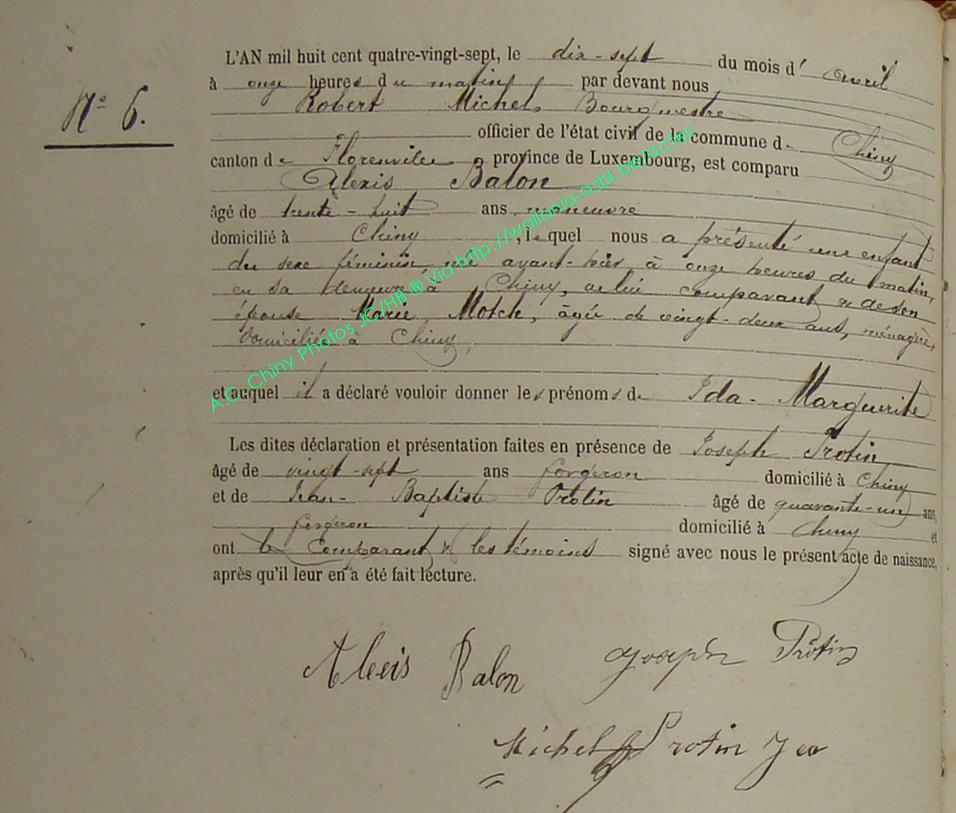 L'AN mil huit cent quatre-vingt-sept, le dix-sept du mois d' avril
à onze heures du matin, par devant nous
Robert Michel, Bourgmestre
officier de l'état civil de la commune de Chiny
canton de Florenville province de Luxembourg, est comparu
Alexis Balon
âgé de trente-huit ans, manœuvre
domicilié à Chiny, lequel nous a présenté une enfant
du sexe féminin, né avant-hier, à onze heures du matin,
en sa demeure à Chiny, de lui comparant & de son
épouse Marie Motch, âgée de vingt-deux ans, ménagère,
domiciliée à Chiny,
et auquel il a déclaré vouloir donner les prénoms de Ida-Marguerite
Les dites déclaration et présentation faites en présence de Joseph Protin
âgé de vingt-sept ans forgeron domicilié à Chiny
et de Jean-Baptiste Protin âgé de quarante-un ans,
forgeron domicilié à Chiny et
ont le Comparant & les témoins signé avec nous le présent acte de naissance,
après qu'il leur en a été fait lecture.
N° 6.
Alexis Balon Joseph Protin
Michel Protin
A.C. Chiny Photos JC/HB ® Via http://wallonia-asbl.be/actes